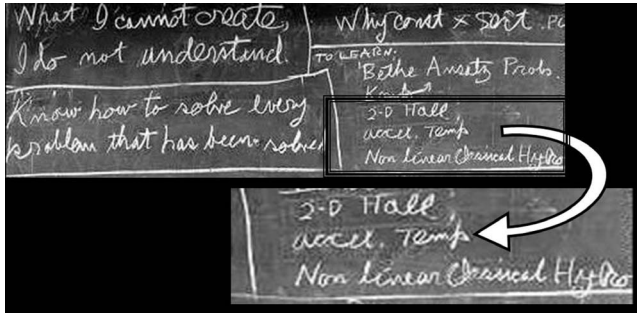 What I cannot create,
I do not understand.
Know how to solve every
problem that has been solved
Why const × sort. PO
TO LEARN.
Bethe Ansatz Probs.
Kondo
2-D Hall,
accel. Temp
Non linear Classical Hydro
2-D Hall,
accel. Temp
Non linear Classical Hydro